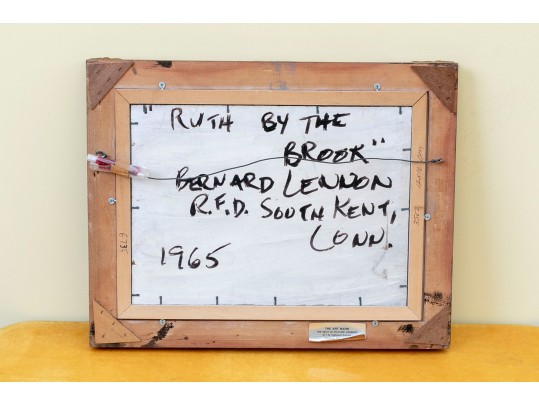 "RUTH BY THE
BROOK"
BERNARD LENNON
R.F.D. SOUTH KENT,
CONN.
1965
THE ART BARN